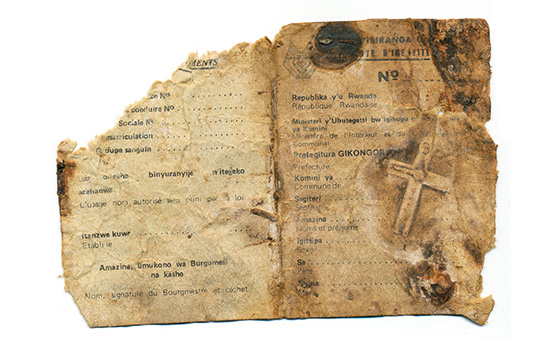 MENTS
Nº
conduire Nº
Sociale Nº
matriculation
Groupe sanguin
binyuranyije n'itejeko
L'usage non autorisé sera puni par la loi
Itanzwe kuwa
Etabli le
Amazina, umukono wa Burgume
na kashe
Nom, signature du Bourgmestre et cachet
IBIRANGA
D'IDE TITE
Nº
Republika y'u Rwanda
République Rwandaise
Ministeri y'Ubutegetsi bw'Igihugu
ya Komini
Ministère de l'Intérieur et du
Communal
Prefegitura GIKONGO
Prefecture
Komini ya
Commune de
Segiteri
Secteur
Amazina
Nom et prénoms
Igitsina
Sexe
Se
Père
Nyina